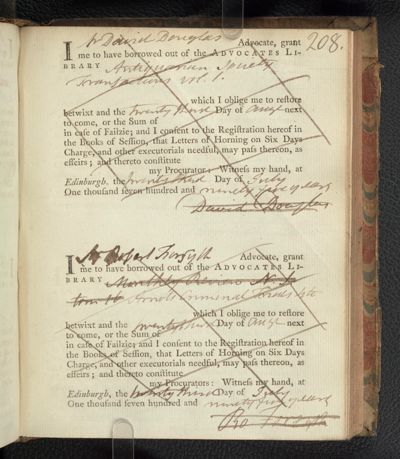 208.
I Mr David Douglas Advocate, grant
me to have borrowed out of the ADVOCATES LI-
BRARY Antiquarian Society
Transactions vol. 1.
which I oblige me to restore
betwixt and the twenty third Day of Augt next
to come, or the Sum of
in case of Failzie; and I consent to the Registration hereof in
the Books of Session, that Letters of Horning on Six Days
Charge, and other executorials needful, may pass thereon, as
effeirs; and thereto constitute
my Procurators: Witness my hand, at
Edinburgh, the twenty third Day of July
One thousand seven hundred and ninety five years
David Douglas
I Mr Robert Forsyth Advocate, grant
me to have borrowed out of the ADVOCATES LI-
BRARY Monthly Review
which I oblige me to restore
betwixt and the twenty third Day of Augt next
to come, or the Sum of
in case of Failzie; and I consent to the Registration hereof in
the Books of Session, that Letters of Horning on Six Days
Charge, and other executorials needful, may pass thereon, as
effeirs; and thereto constitute
my Procurators: Witness my hand, at
Edinburgh, the twenty third Day of July
One thousand seven hundred and ninety five years
Ro Forsyth